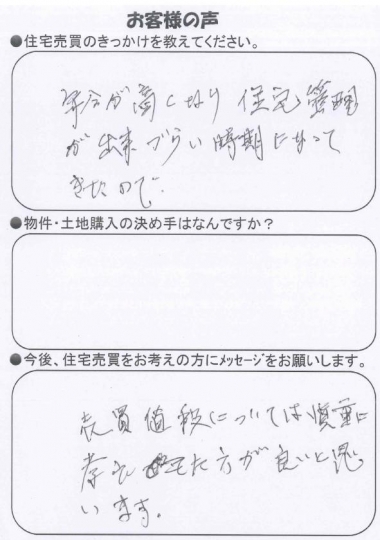 お客様の声
●住宅売買のきっかけを教えてください。
年令が高くなり 住宅管理
が出来づらい時期になって
きたので.
●物件・土地購入の決め手はなんですか?
●今後、住宅売買をお考えの方にメッセージをお願いします。
売買値段については慎重に
考えた方が良いと思
います。